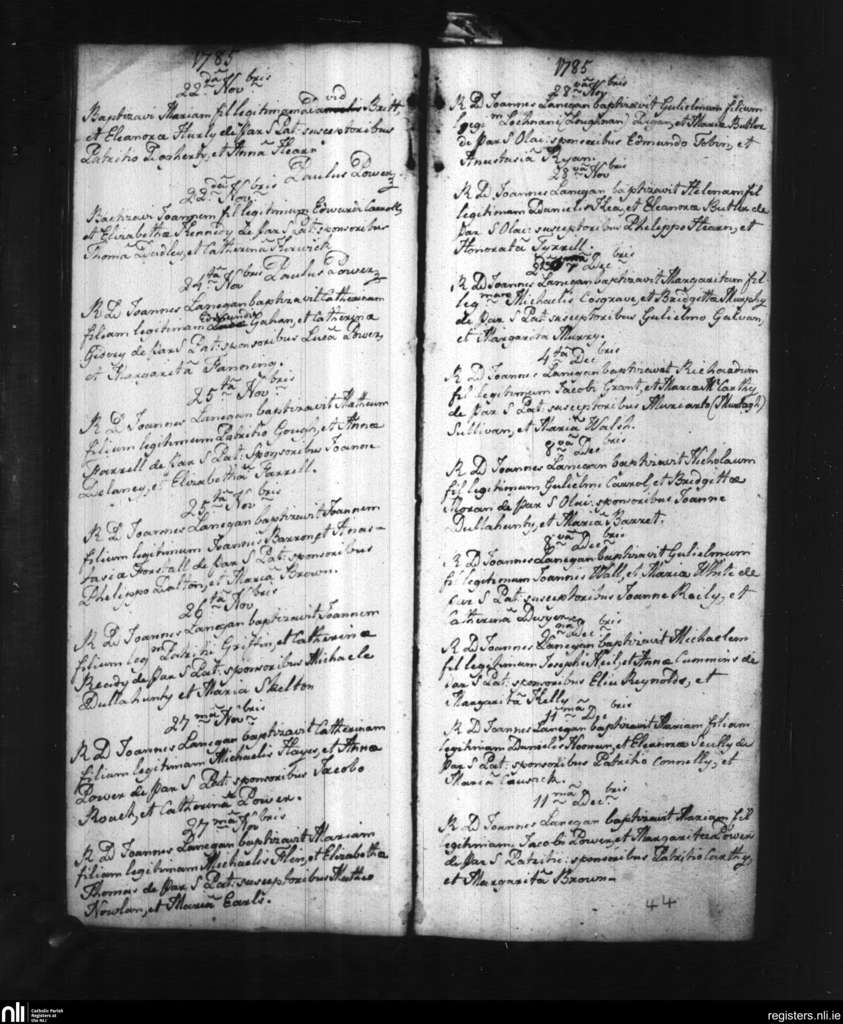 1785
22 da Nov bris
Baptizavi Mariam fil legitimam Davidis Britt,
et Eleanora Hurly de Par S Pat: susceptoribus
Patritio Dogherty, et Anna Hearn
Paulus Power
22 da Nov bris
Baptizavi Joannem fil legitimum Edwardi Carroll,
et Elizabethæ Kennedy de par S Pat: sponsoribus
Thoma Dudley, et Catherina
24 ta Nov bris Paulus Power
R D Joannes Lanegan baptizavit Catherinam
filiam legitimam Gahan, et Catherinæ
de par S Pat: sponsoribus Luca Power,
et Margarita Fanning.
25 ta Nov bris
R D Joannes Lanegan baptizavit Matheum
filium legitimum Patritio Gough, et Annæ
Farrell de Par S Pat: sponsoribus Joanne
Delaney, et Elizabetha Farrell.
25 ta Nov bris
R D Joannes Lanegan baptizavit Joannem
filium legitimum Joannis Barron, et Anas-
tasiæ Forstall de par S Pat: sponsoribus
Phelippo Dalton, et Maria Brown.
26 ta Nov bris
R D Joannes Lanegan baptizavit Joannem
filium leg m Patritii Griffin, et Catherinæ
Ready de Par S Pat: sponsoribus Michaele
Dullahunty et Maria Skelton
27 ma Nov bris
R D Joannes Lanegan baptizavit Catherinam
filiam legitimam Michaelis Hayes, et Annæ
Power de Par S Pat: sponsoribus Jacobo
Roach, et Catherina Power.
27 ma Nov bris
R D Joannes Lanegan baptizavit Mariam
filiam legitimam Michaelis Alen, et Elizabethæ
Thomas de Par S Pat: susceptoribus Matheo
Nowlan, et Maria Earls.
1785
28 va Nov bris
R D Joannes Lanegan baptizavit Gulielmum filium
legi m Lochnani (Loughnan) et Maria Butler
de par S Olai: sponsoribus Edmundo Tobin, et
Anastasia Ryan.
28 va Nov bris
R D Joannes Lanegan baptizavit Helenam fil
legitimam Danielis Shea, et Eleanora Butler de
Par S Olai: susceptoribus Phelippo Hearn, et
Honorata Tyrrell.
Dec bris
R D Joannes Lanegan baptizavit Margaritam fil
leg mam Michaelis Cosgrave, et Bridgetta Murphy
de par S Pat: susceptoribus Gulielmo Galvan,
et Margarita Murry.
4 ta Dec bris
R D Joannes Lanegan baptizavit Richardum
fil legitimum Jacobi Grant, et Maria McCarthy
de Par S Pat: susceptoribus Muriarto (Murtagh)
Sullivan, et Maria Walsh.
8 va Dec bris
R D Joannes Lanegan baptizavit Nicholaum
fil legitimum Gulielmi Carrol, et Bridgettæ
Moran de Par S Olai: sponsoribus Joanne
Dullahunty, et Maria Barret.
8 va Dec bris
R D Joannes Lanegan baptizavit Gulielmum
fil legitimum Joannis Wall, et Maria White de
Par S Pat: susceptoribus Joanne Raily, et
Catherina
9 na Dec bris
R D Joannes Lanegan baptizavit Michaelem
fil legitimum Josephi Neil, et Annæ Cummins de
Par S Pat: sponsoribus Elia Reynolds, et
Margarita Kelly
11 ma Dec bris
R D Joannes Lanegan baptizavit Mariam filiam
legitimam Danielis Noonan, et Eleanoræ Scully de
Par S Pat: sponsoribus Patritio Connelly, et
Maria Cusack.
11 ma Dec bris
R D Joannes Lanegan baptizavit Mariam fil
legitimam Jacobi Power, et Margaritæ Power
de Par S Patritii: sponsoribus Patritio Carthy,
et Margarita Brown
44
nli
Catholic Parish
Registers at
the NLI
registers.nli.ie